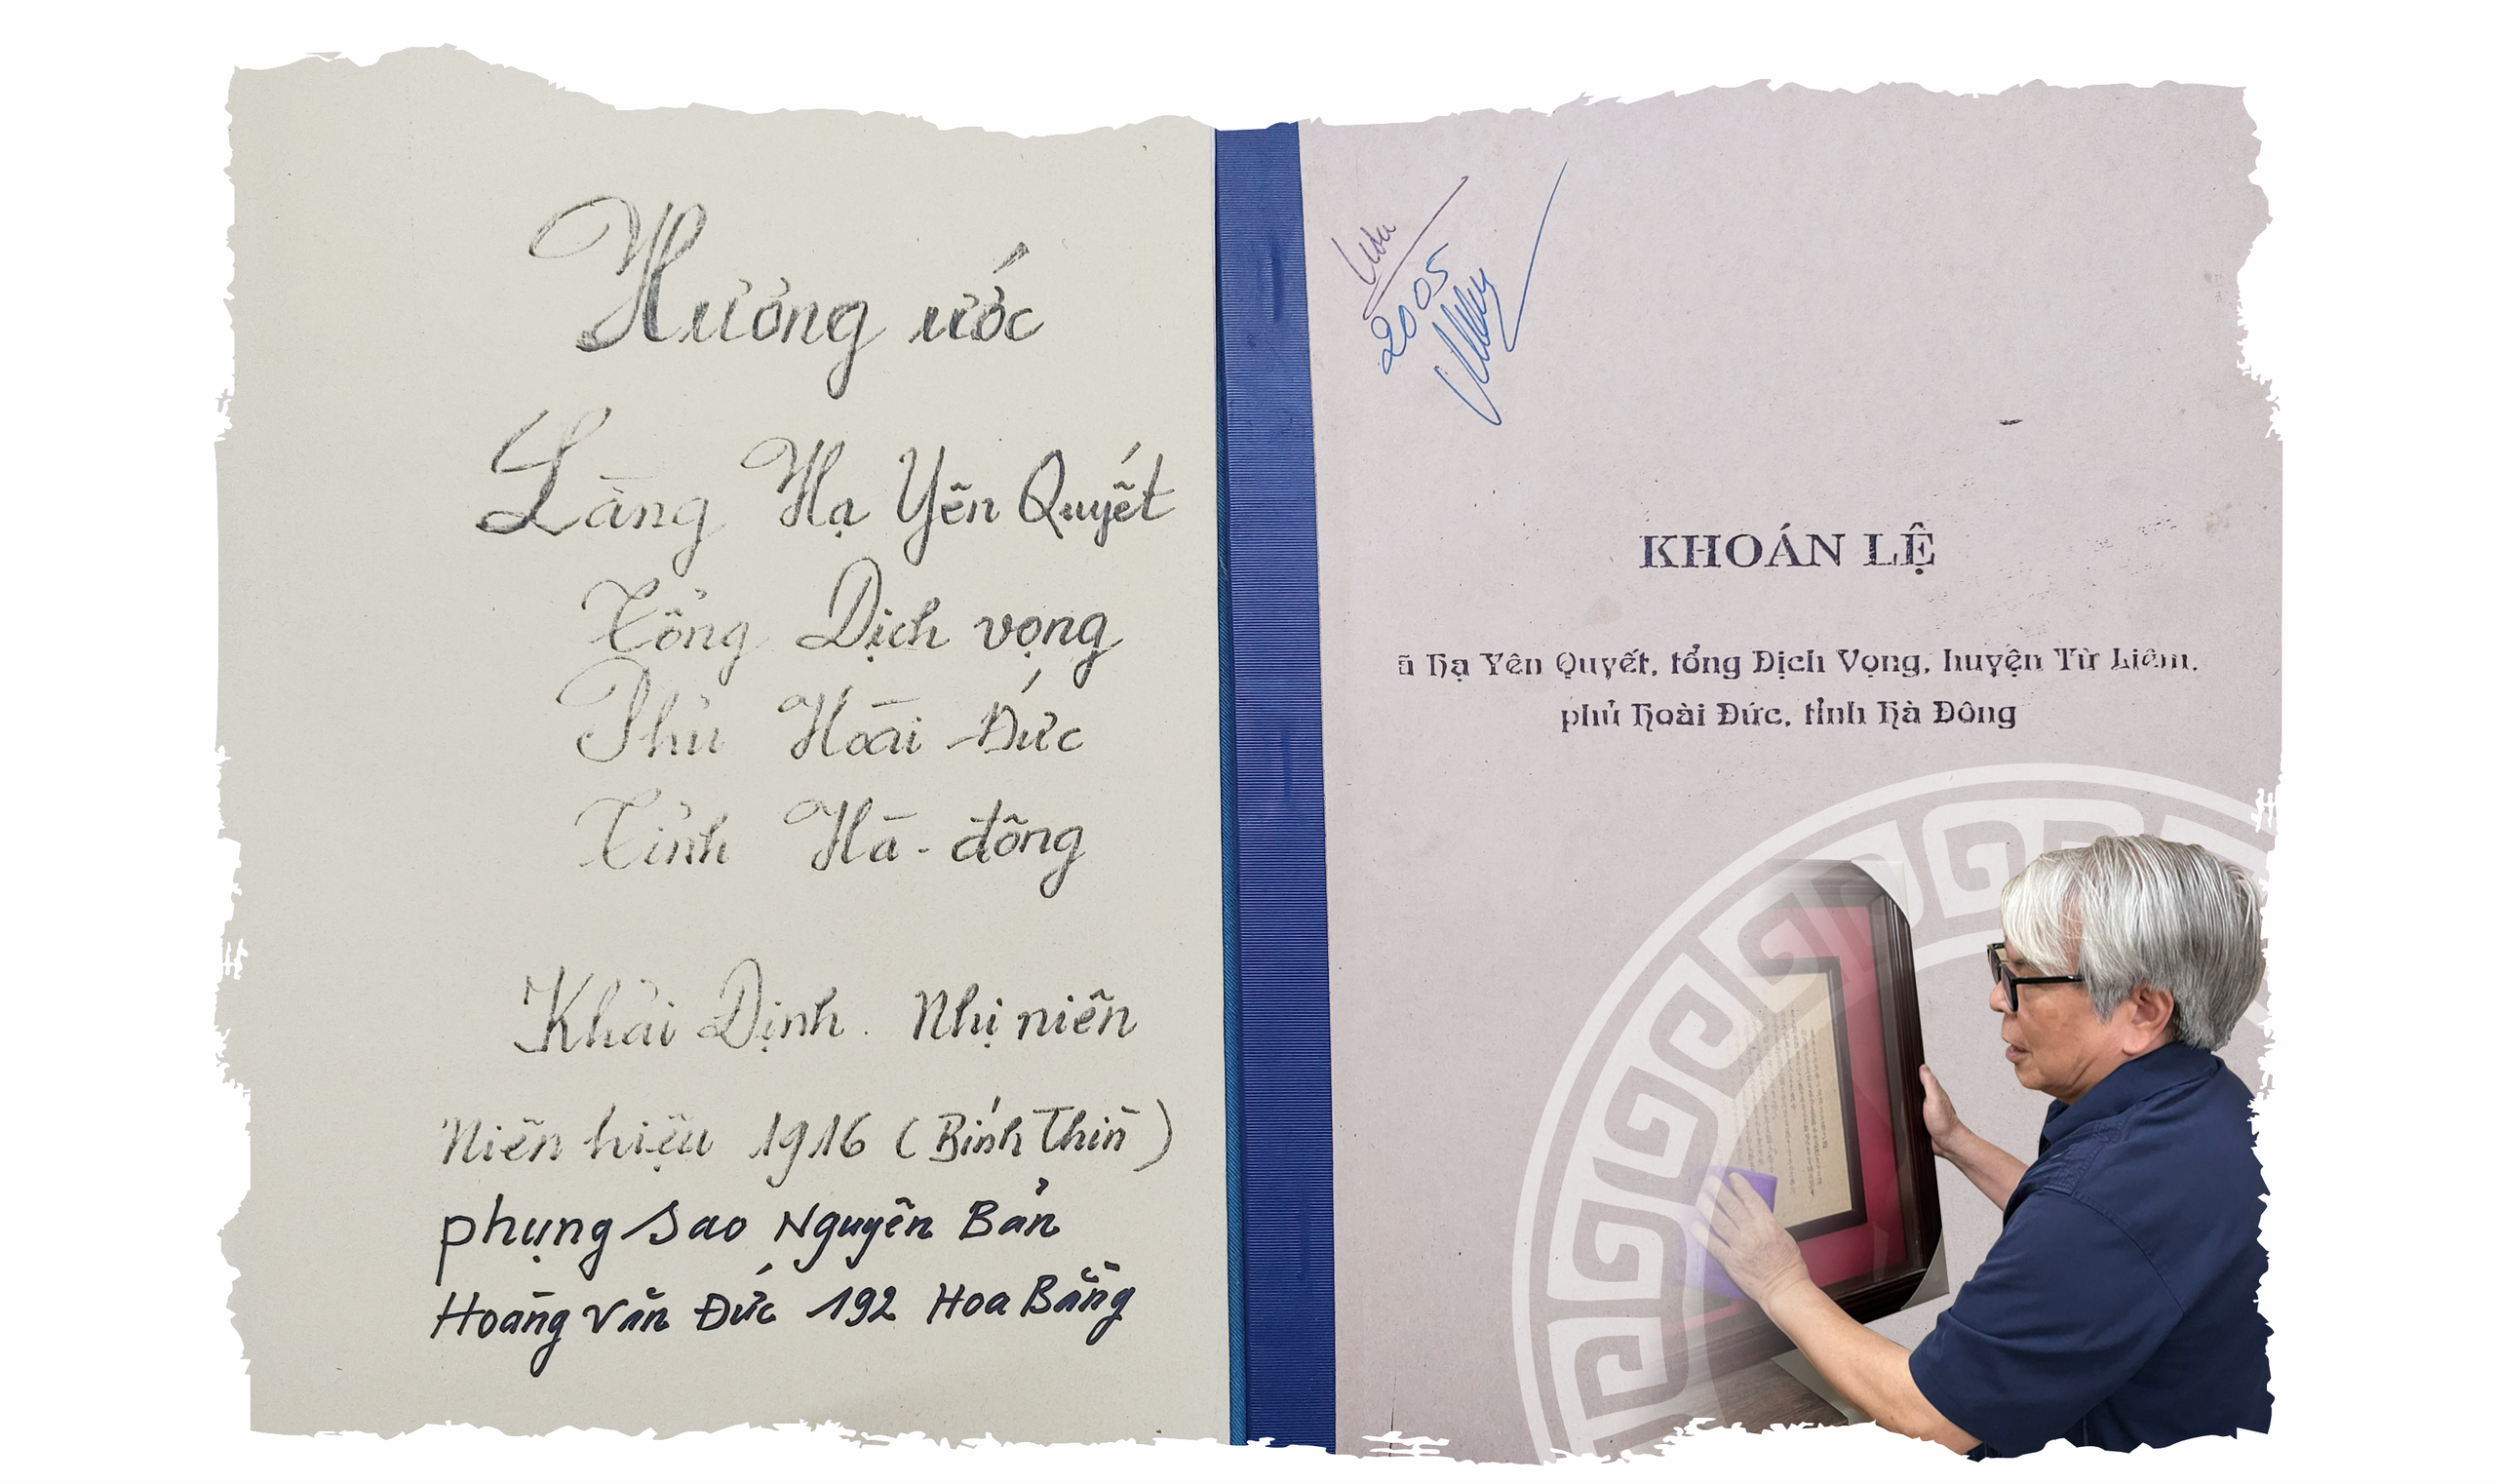 Hương ước
Làng Hạ Yên Quyết
Tổng Dịch vọng
Phủ Hoài Đức
Tỉnh Hà-đông
Khải Định. Nhị niên
Niên hiệu 1916 (Bính Thìn)
phụng sao Nguyên Bản
Hoàng Văn Đức 192 Hoa Bằng
2005
KHOÁN LỆ
ã Hạ Yên Quyết, tổng Dịch Vọng, huyện Từ Liêm,
phủ Hoài Đức, tỉnh Hà Đông